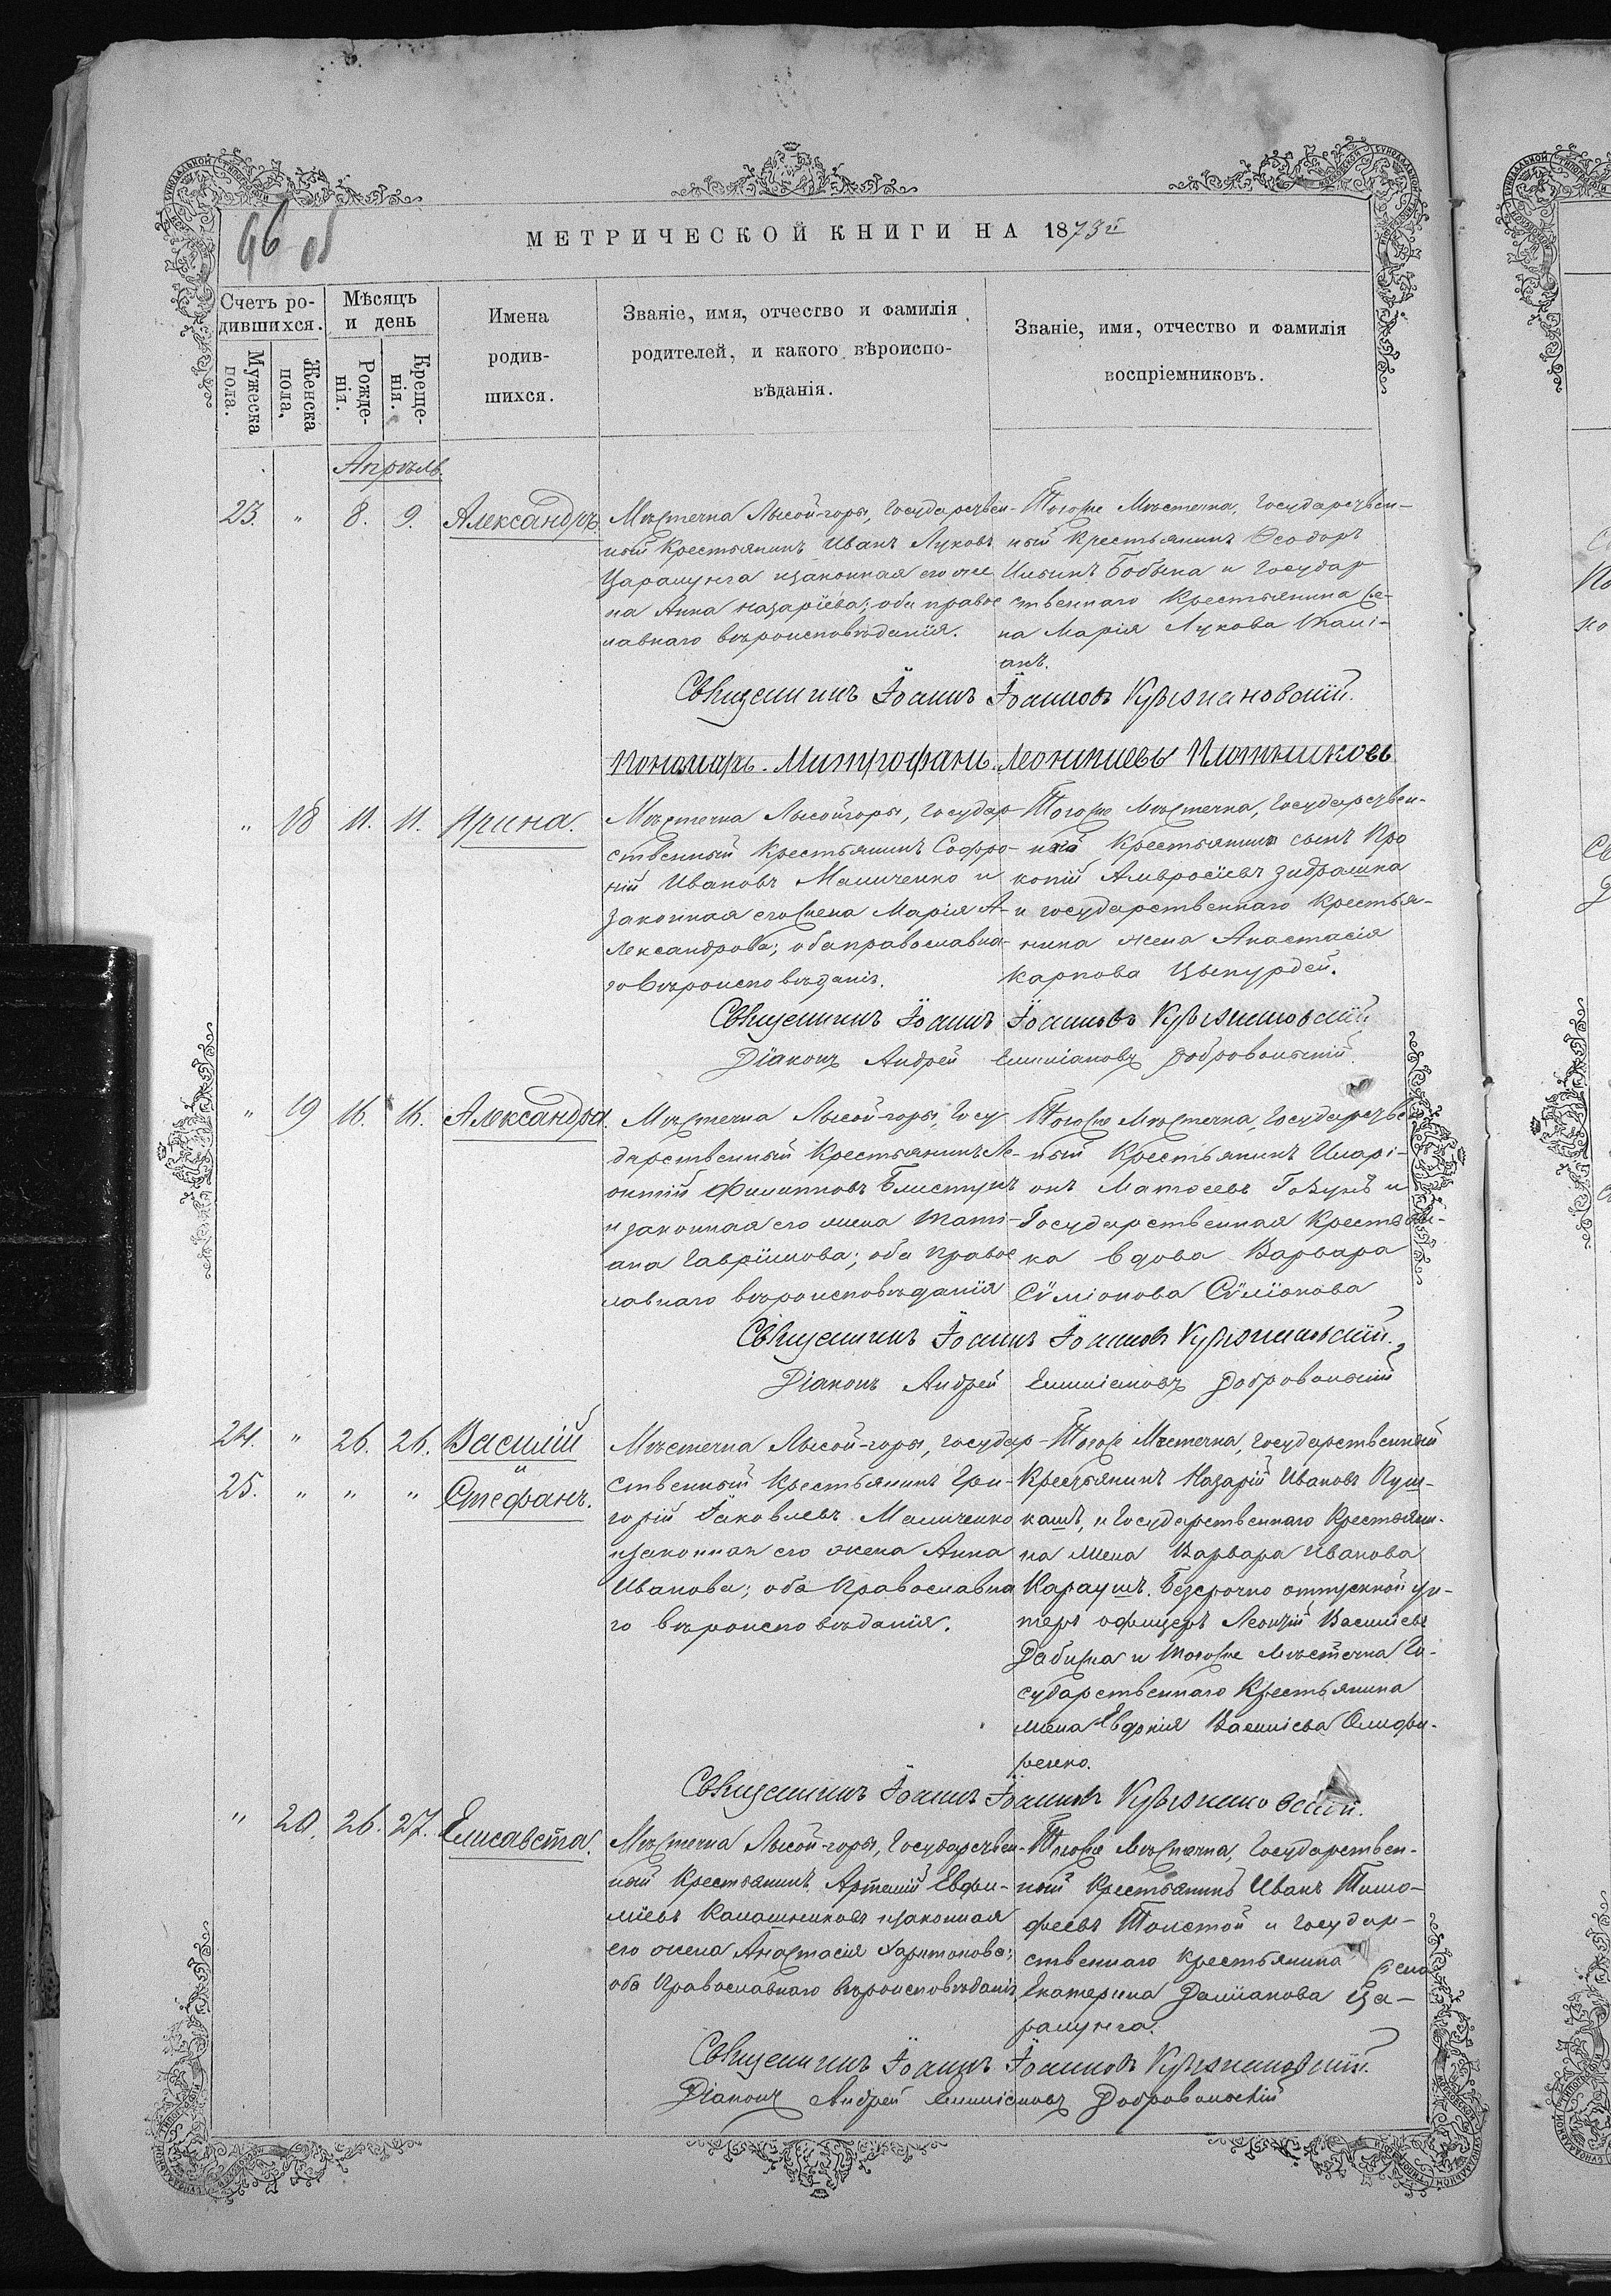 46 об
МЕТРИЧЕСКОЙ КНИГИ НА 1873й
Счетъ ро-
дившихся.
Мужеска
пола.
Женска
пола.
Мѣсяцъ
и день
Рожде-
нія.
Креще-
нія.
Имена
родив-
шихся.
Званіе, имя, отчество и фамилія
родителей, и какого вѣроиспо-
вѣданія.
Званіе, имя, отчество и фамилія
воспріемниковъ.
Апрѣль.
23. " 8. 9. Александръ.
Мѣстечка Лысой-горы, Государствен-
ный Крестьянинъ Иванъ Луковъ
Царалунга изаконная его же
на Анна Назаріева; оба правос
лавнаго вѣроисповѣданія.
Тогоже Мѣстечка, Государствен-
ный Крестьянинъ Ѳеодоръ
Ильинъ Бобыка и Государ
ственнаго Крестьянина же-
на Марія Лукова
Священникъ Іоаннъ Іоанновъ
Пономарь Митрофанъ Леонтиевъ Плотниковъ
" 18 11. 11. Ирина.
Мѣстечка Лысойгоры, Государ
ственный Крестьянинъ Софро-
ній Ивановъ Маличенко и
законная егожена Марія А-
лександрова; оба православна-
го вѣроисповѣданія.
Тогоже Мѣстечка, Государствен-
ный Крестьянина сынъ Про
копій Амвросіевъ
и государственнаго Крестья-
нина жена Анастасія
Карпова Цыпурдей.
Священникъ Іоаннъ Іоанновъ
Діаконъ Андрей Емиліановъ Добровольскій.
" 19 16. 16. Александра.
Мѣстечка Лысой-горы, Госу
дарственный Крестьянинъ Ле-
онтій Филипповъ
и законная его жена Тати-
ана Гавріилова; оба правос
лавнаго вѣроисповѣданія
Тогоже Мѣстечка, Государстве
ный Крестьянинъ Иларі-
онъ Матѳеевъ и
Государственная Крестьян-
ка вдова Варвара
Сѵміонова Сѵміонова
Священникъ Іоаннъ Іоанновъ
Діаконъ Андрей Емиліановъ Добровольскій
24. " 26. 26. Василій
и
25. " " " Стефанъ.
Мѣстечка Лысой-горы, государ
ственный Крестьянинъ Гри-
горій Іаковлевъ Маличенко
изаконная его жена Анна
Иванова; оба Православна
го вѣроисповѣданія.
Тогоже Мѣстечка, Государственный
Крестьянинъ Назарій Ивановъ Пуш-
кашъ, и Государственнаго Крестьяни-
на жена Варвара Иванова
Караушъ. Безсрочно отпускной ун-
теръ офицеръ Леонтій Васильевъ
Дабижа и тогоже мѣстечка Го-
сударственнаго Крестьянина
жена Евдокія Васильева
Священникъ Іоаннъ Іоанновъ
" 20. 26. 27. Елисавета.
Мѣстечка Лысой-горы, Государствен-
ный Крестьянинъ Артемій Евфи-
міевъ Калашниковъ изаконная
его жена Анастасія Харитонова;
оба Православнаго Вѣроисповѣданія
Тогоже Мѣстечка, Государствен-
ный Крестьянинъ Иванъ Тимо-
феевъ Толстой и Государ-
ственнаго Крестьянина жена
Екатерина Даміанова Ца-
ралунга.
Священникъ Іоаннъ Іоанновъ
Діаконъ Андрей Емиліановъ Добровольскій